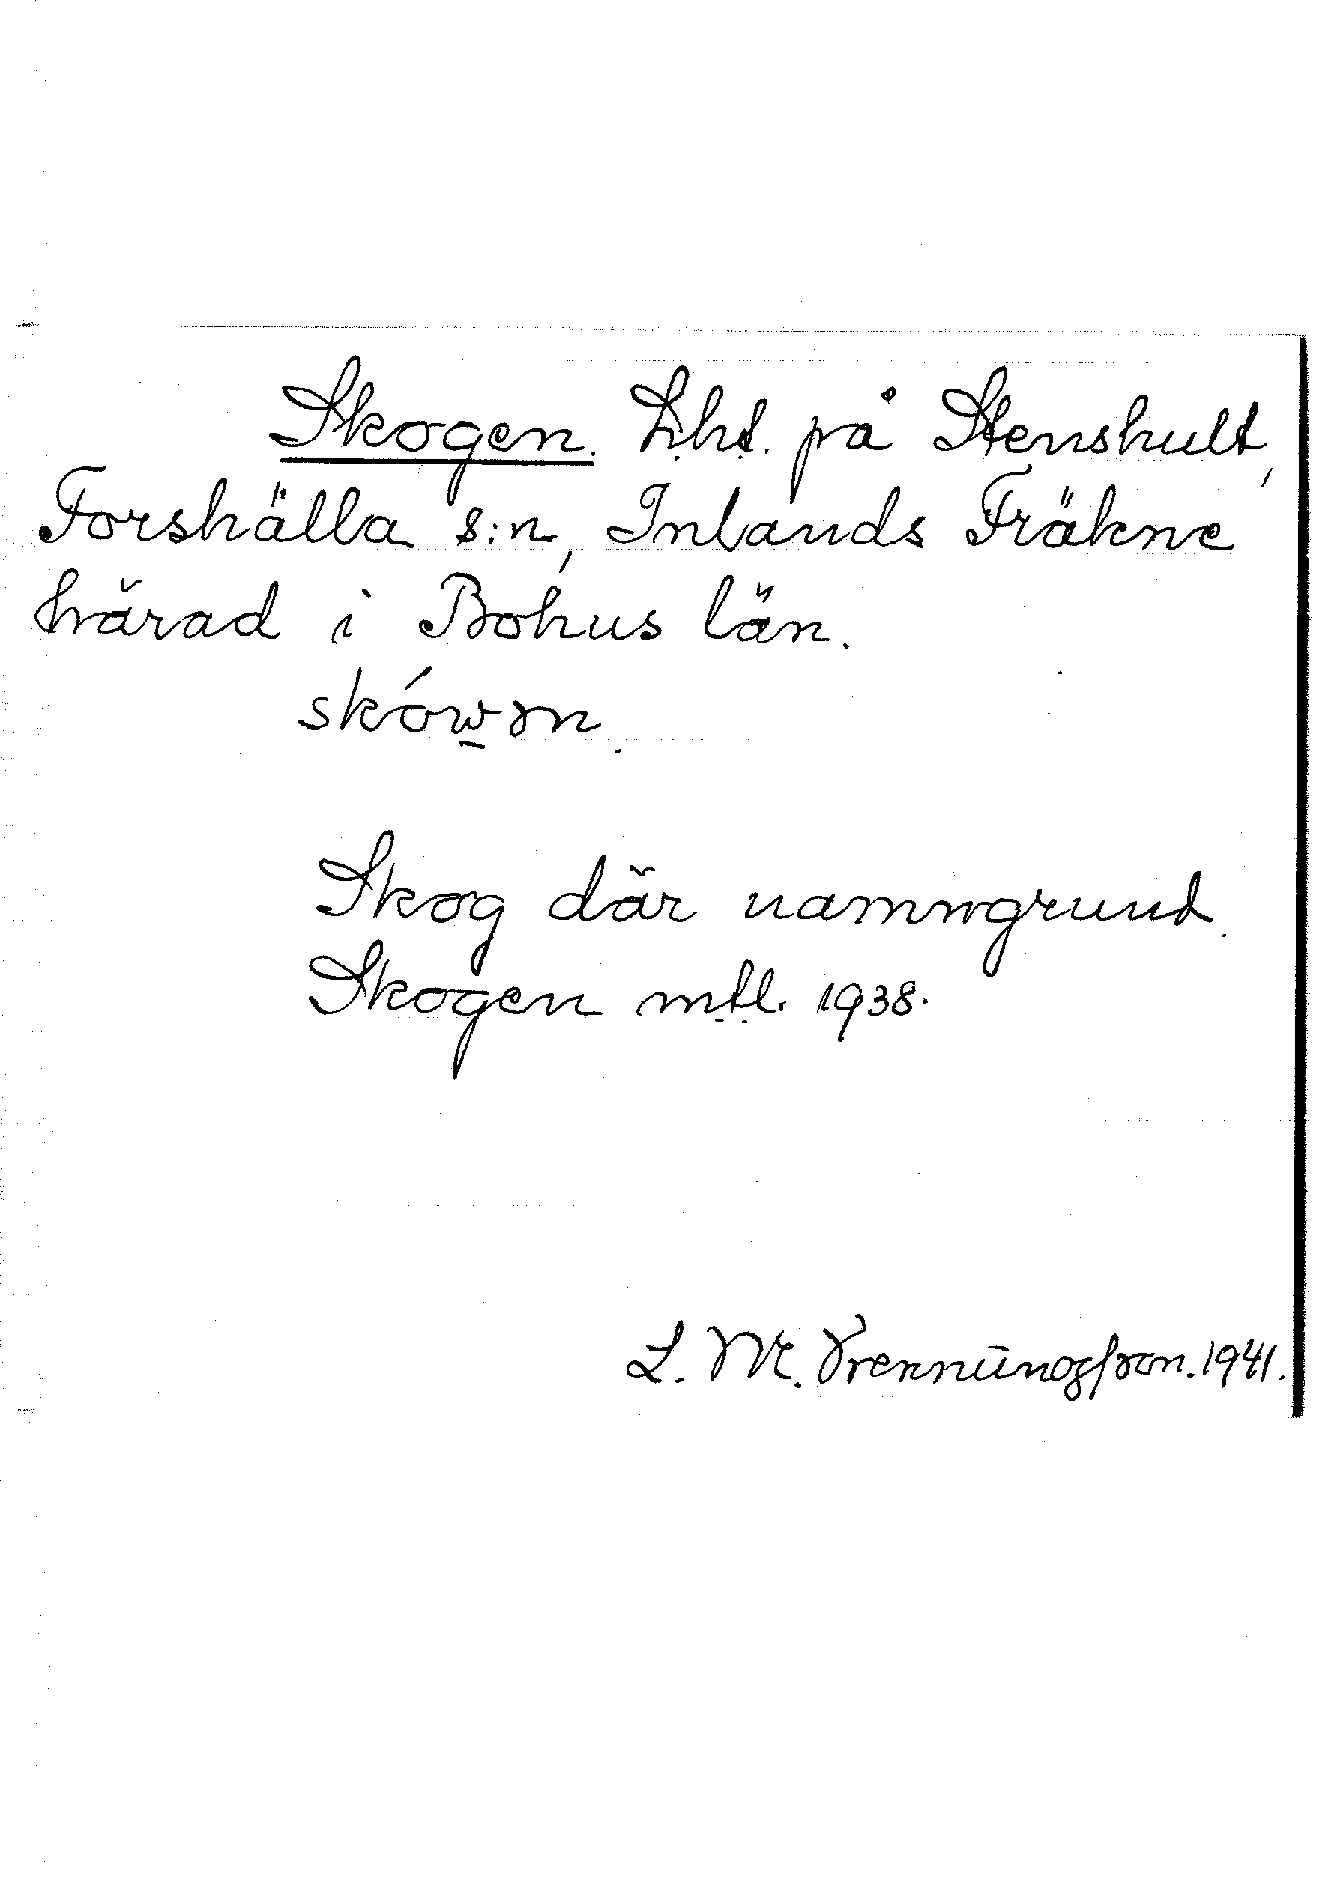 Skogen. Lht. på Stenshult,
Forshälla s:n, Inlands Fräkne
härad i Bohus län.
skówən.
Skog där namngrund.
Skogen mtl. 1938.
L. M. 1941.